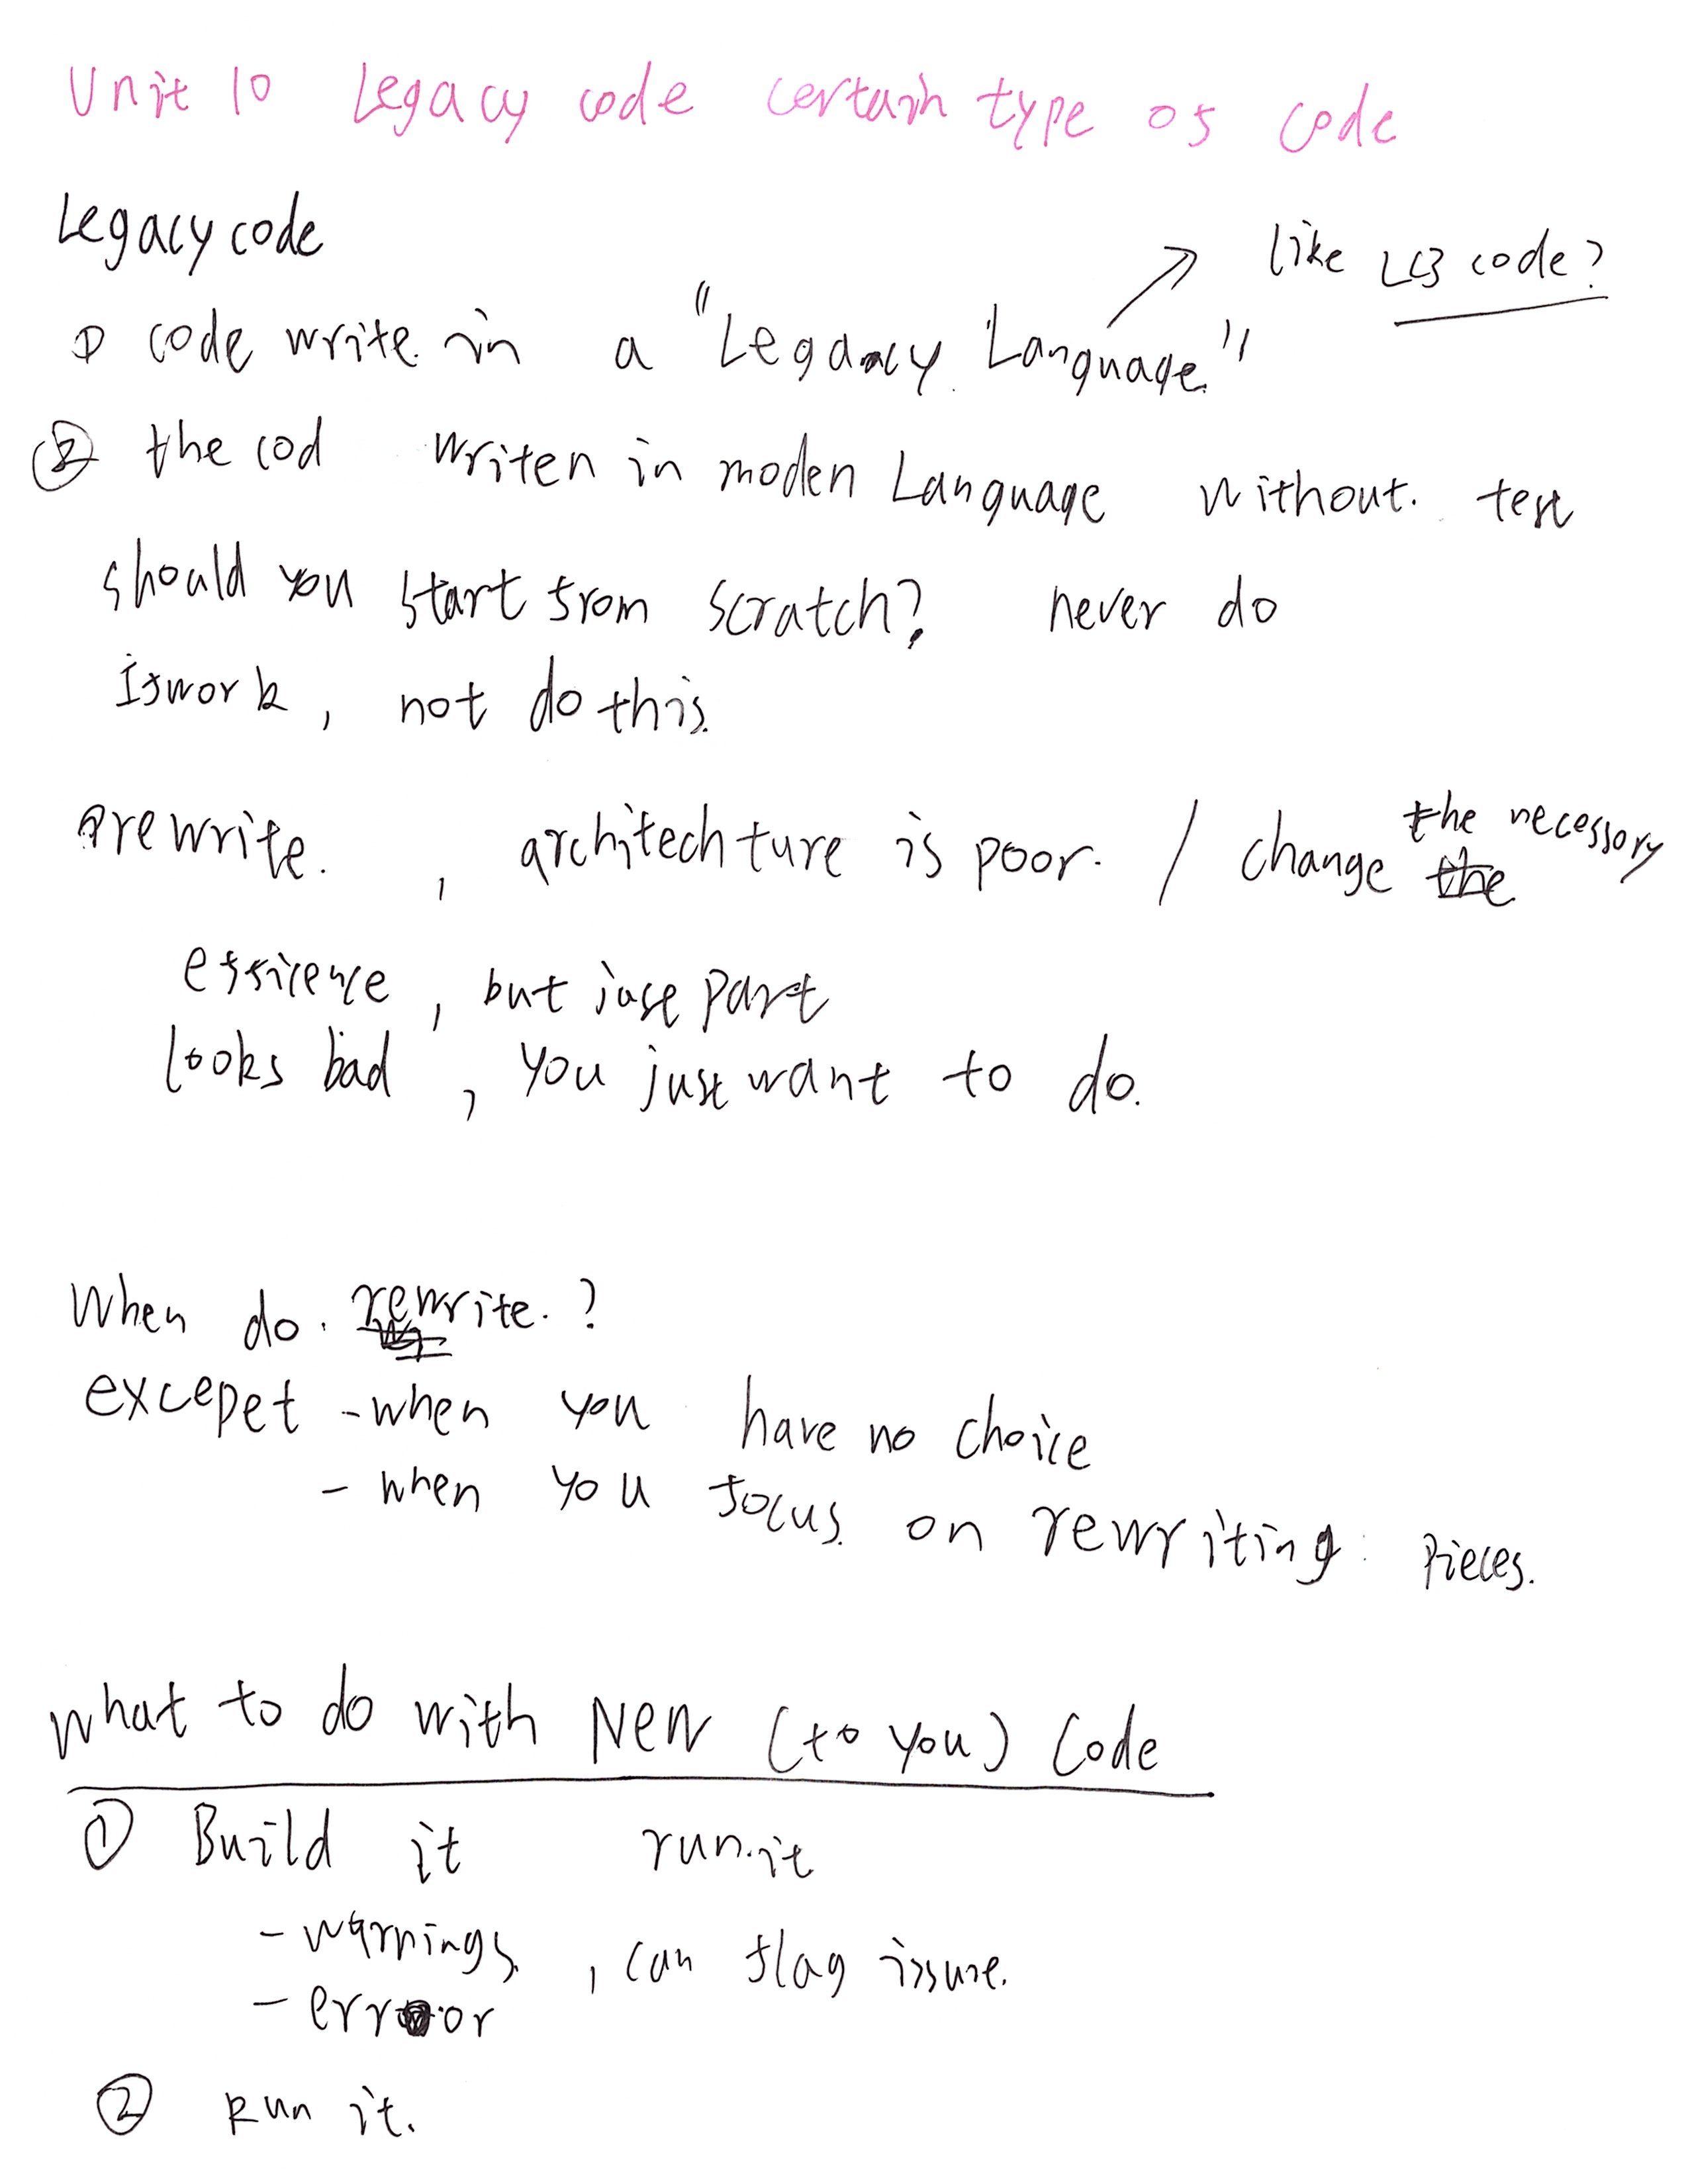 Unit 10 Legacy code certain type of code
Legacy code
like LC3 code?
① code write in a "Legancy Language"
② the cod writen in moden Language without test
should you start from scratch? never do
If work, not do this.
prewrite. , architechture is poor. / change the necessory
efficence, but just part
looks bad , you just want to do.
When do rewrite.?
excepet - when you have no choice
- when you focus on rewriting pieces.
What to do with New (to you) Code
① Build it run it
- warnings , can flag issure.
- error
② Run it.